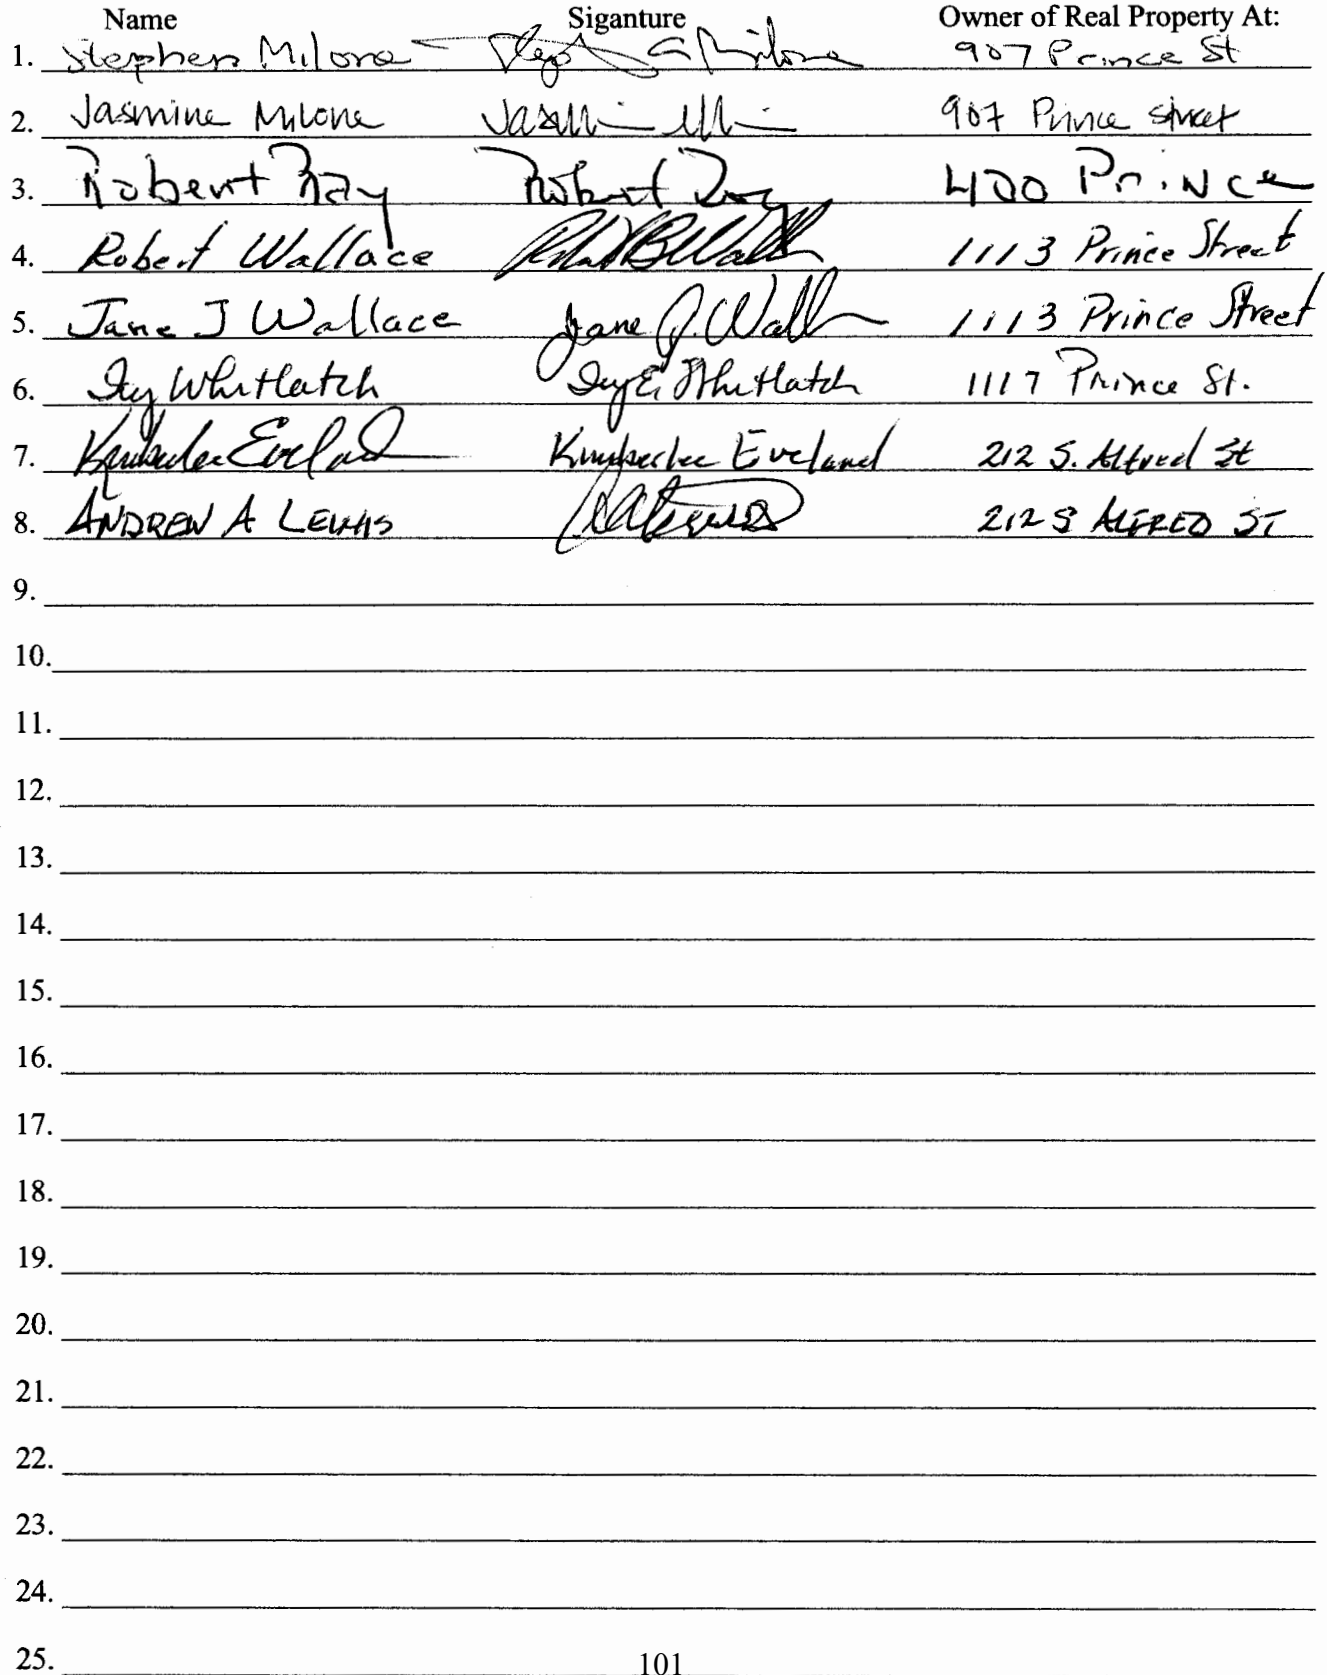 Name Siganture Owner of Real Property At:
1. Stephen Milone Milone 907 Prince St
2. Jasmine Milone 907 Prince street
3. Robert Ray Robert Ray 400 Prince
4. Robert Wallace 1113 Prince Street
5. Jane J Wallace Jane J. Wall 1113 Prince Street
6. Ivy Whitlatch Ivy E. Whitlatch 1117 Prince St.
7. Kimberlee Eveland Kimberlee Eveland 212 S. Alfred St
8. ANDREW A LEWIS 212 S ALFRED ST
9.
10.
11.
12.
13.
14.
15.
16.
17.
18.
19.
20.
21.
22.
23.
24.
25.
101